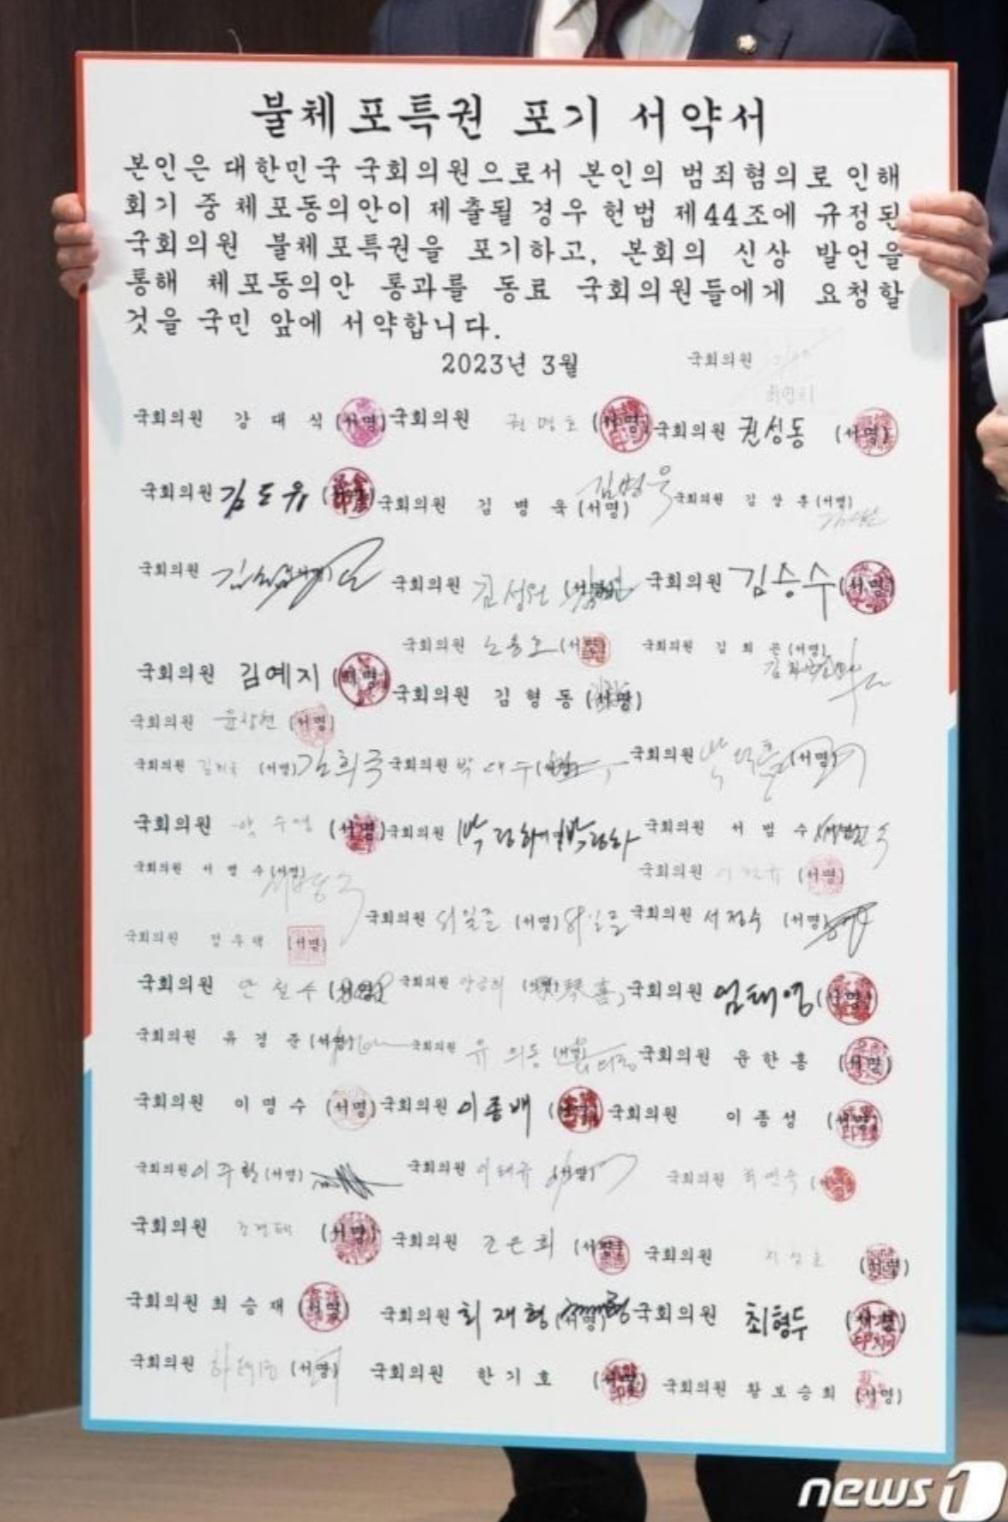 불체포특권 포기 서약서
본인은 대한민국 국회의원으로서 본인의 범죄혐의로 인해
회기 중 체포동의안이 제출될 경우 헌법 제44조에 규정된
국회의원 불체포특권을 포기하고, 본회의 신상 발언을
통해 체포동의안 통과를 동료 국회의원들에게 요청할
것을 국민 앞에 서약합니다.
2023년 3월
국회의원
국회의원 강대식 (서명) 국회의원 권명호 (서명) 국회의원 권성동 (서명)
국회의원 김도읍 (서명) 국회의원 김병욱 (서명) 김병욱 국회의원 김상훈 (서명)
국회의원 국회의원 김성원 (서명) 국회의원 김승수 (서명)
국회의원 노용호 (서명) 국회의원 김희곤 (서명)
국회의원 김예지 (서명) 국회의원 김형동 (서명)
국회의원 윤창현 (서명)
국회의원 (서명) 김희국 국회의원 박대수 (서명) 국회의원 박덕흠 (서명)
국회의원 박수영 (서명) 국회의원 박정하 박정하 국회의원 서범수 서범수
국회의원 서병수 (서명) 서병수 국회의원 (서명)
국회의원 서일준 (서명) 서일준 국회의원 서정숙 (서명)
국회의원 정우택 (서명)
국회의원 안철수 (서명) 국회의원 양금희 국회의원 엄태영 (서명)
국회의원 유경준 (서명) 국회의원 유의동 국회의원 윤한홍 (서명)
국회의원 이명수 (서명) 국회의원 이종배 국회의원 이종성 (서명)
국회의원 이주환 (서명) 국회의원 이태규 (서명) 국회의원 최연숙
국회의원 조경태 (서명) 국회의원 조은희 국회의원 지성호 (서명)
국회의원 최승재 (서명) 국회의원 최재형 (서명) 국회의원 최형두 (서명)
국회의원 하태경 (서명) 국회의원 한기호 (서명) 국회의원 황보승희 (서명)
news1